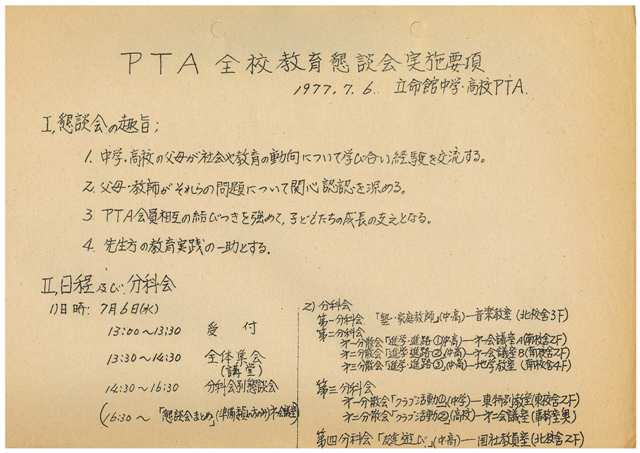 PTA 全校教育懇談会実施要項
1977.7.6. 立命館中学・高校PTA.
I,懇談会の趣旨;
1. 中学・高校の父母が社会や教育の動向について学び合い経験を交流する。
2. 父母・教師がそれらの問題について関心認識を深める。
3. PTA会員相互の結びつきを強めて、子どもたちの成長の支えとなる。
4. 先生方の教育実践の一助とする.
II,日程及び分科会
1)日時: 7月6日(水)
13:00〜13:30 受付
13:30〜14:30 全体集会
(講堂)
14:30〜16:30 分科会別懇談会
(16:30〜 「懇談会まとめ」
2)分科会
第一分科会 「塾・家庭教師」(中高)—音楽教室(北校舎3F)
第二分科会
オ一分散会「進学・進路①(中高)—オ一会議室A(南校舎2F)
オ二分散会「進学・進路②(中高)—オ一会議室B(南校舎2F)
オ三分散会「進学・進路③(中高)—地学教室(南校舎4F)
第三分科会
オ一分散会「クラブ活動①(中学)—
オ二分散会「クラブ活動②(高校)—オ二会議室
第四分科会 (中高)—国社教員室(北校舎2F)